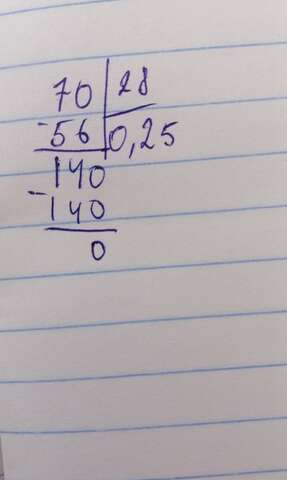 70 | 28
-56 | 0,25
140
-140
0